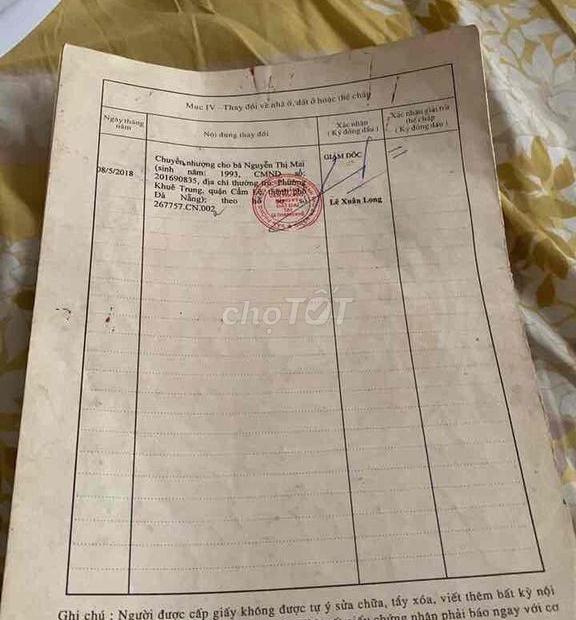 Mục IV - Thay đổi về nhà ở, đất ở hoặc thế chấp
Ngày tháng năm
Nội dung thay đổi
Xác nhận (Ký đóng dấu)
Xác nhận giải trừ thế chấp (Ký đóng dấu)
08/5/2018
Chuyển nhượng cho bà Nguyễn Thị Mai
(sinh năm: 1993, CMND số:
201690835, địa chỉ thường trú: Phường
Khuê Trung, quận Cẩm Lệ, thành phố
Đà Nẵng); theo hồ sơ số
267757.CN.002
GIÁM ĐỐC
Lê Xuân Long
chợTỐT
Ghi chú : Người được cấp giấy không được tự ý sửa chữa, tẩy xóa, viết thêm bất kỳ nội
chứng nhận phải báo ngay với cơ